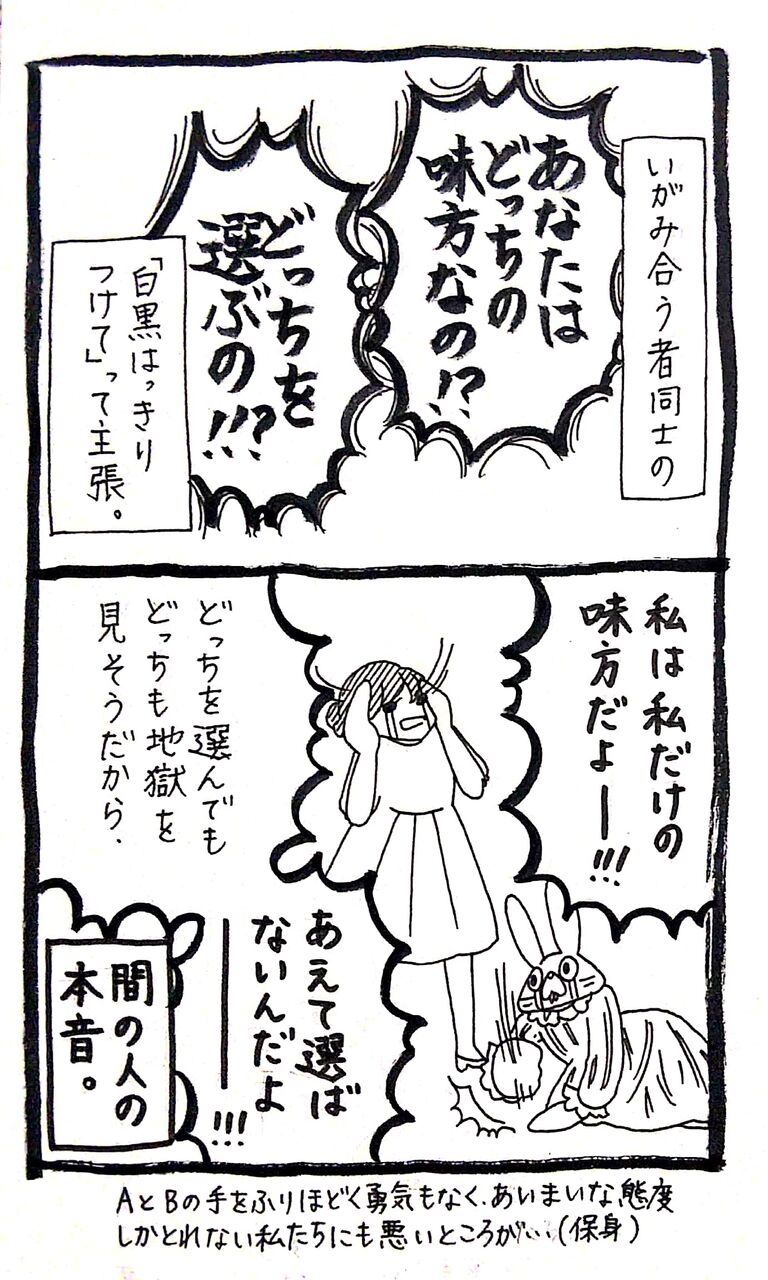 いがみ合う者同士の
あなたは
どっちの
味方なの!?
どっちを
選ぶの!!!?
「白黒はっきり
つけて」って主張。
私は私だけの
味方だよー!!!
どっちを選んでも
どっちも地獄を
見そうだから、
あえて選ば
ないんだよ
ー!!!
間の人の
本音。
AとBの手をふりほどく勇気もなく、あいまいな態度
しかとれない私たちにも悪いところが…(保身)